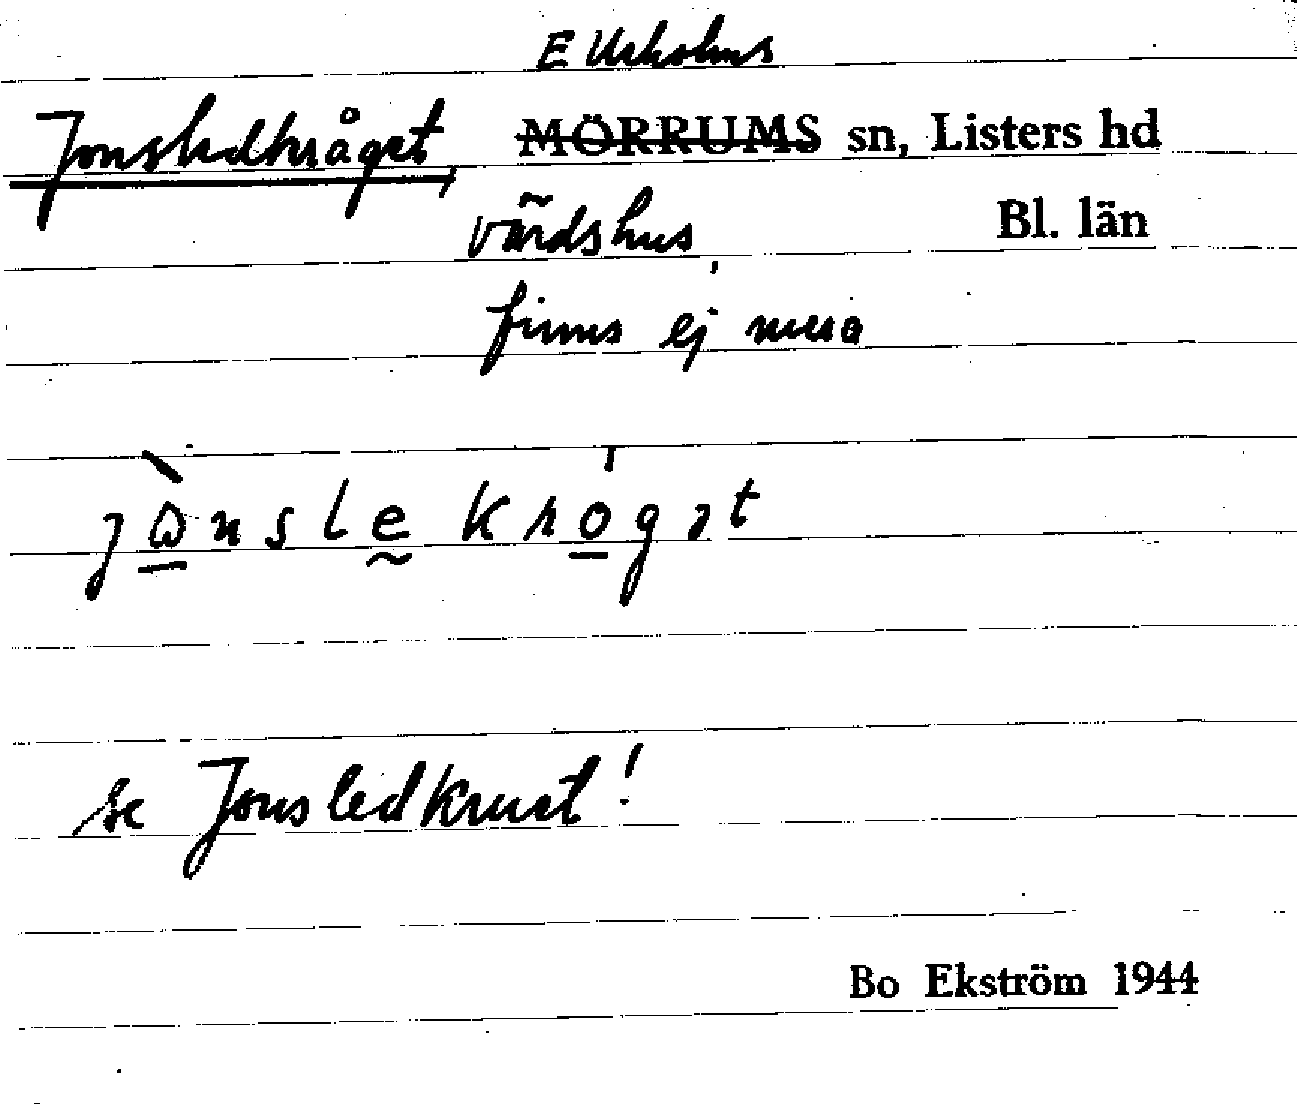 E Urholms
Jonsledkråget, MÖRRUMS sn, Listers hd
värdshus, Bl. län
finns ej mera
se Jonsledkruet!
Bo Ekström 1944